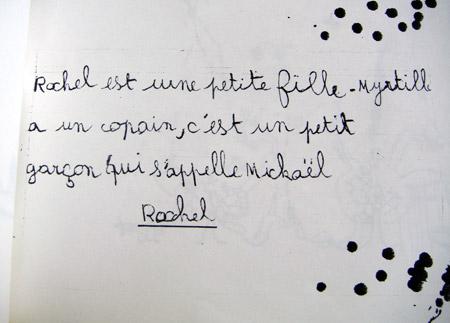 Rachel est uune petite fille - Myrtille
a un copain, c'est un petit
garçon qui s'appelle Mickaël
Rachel